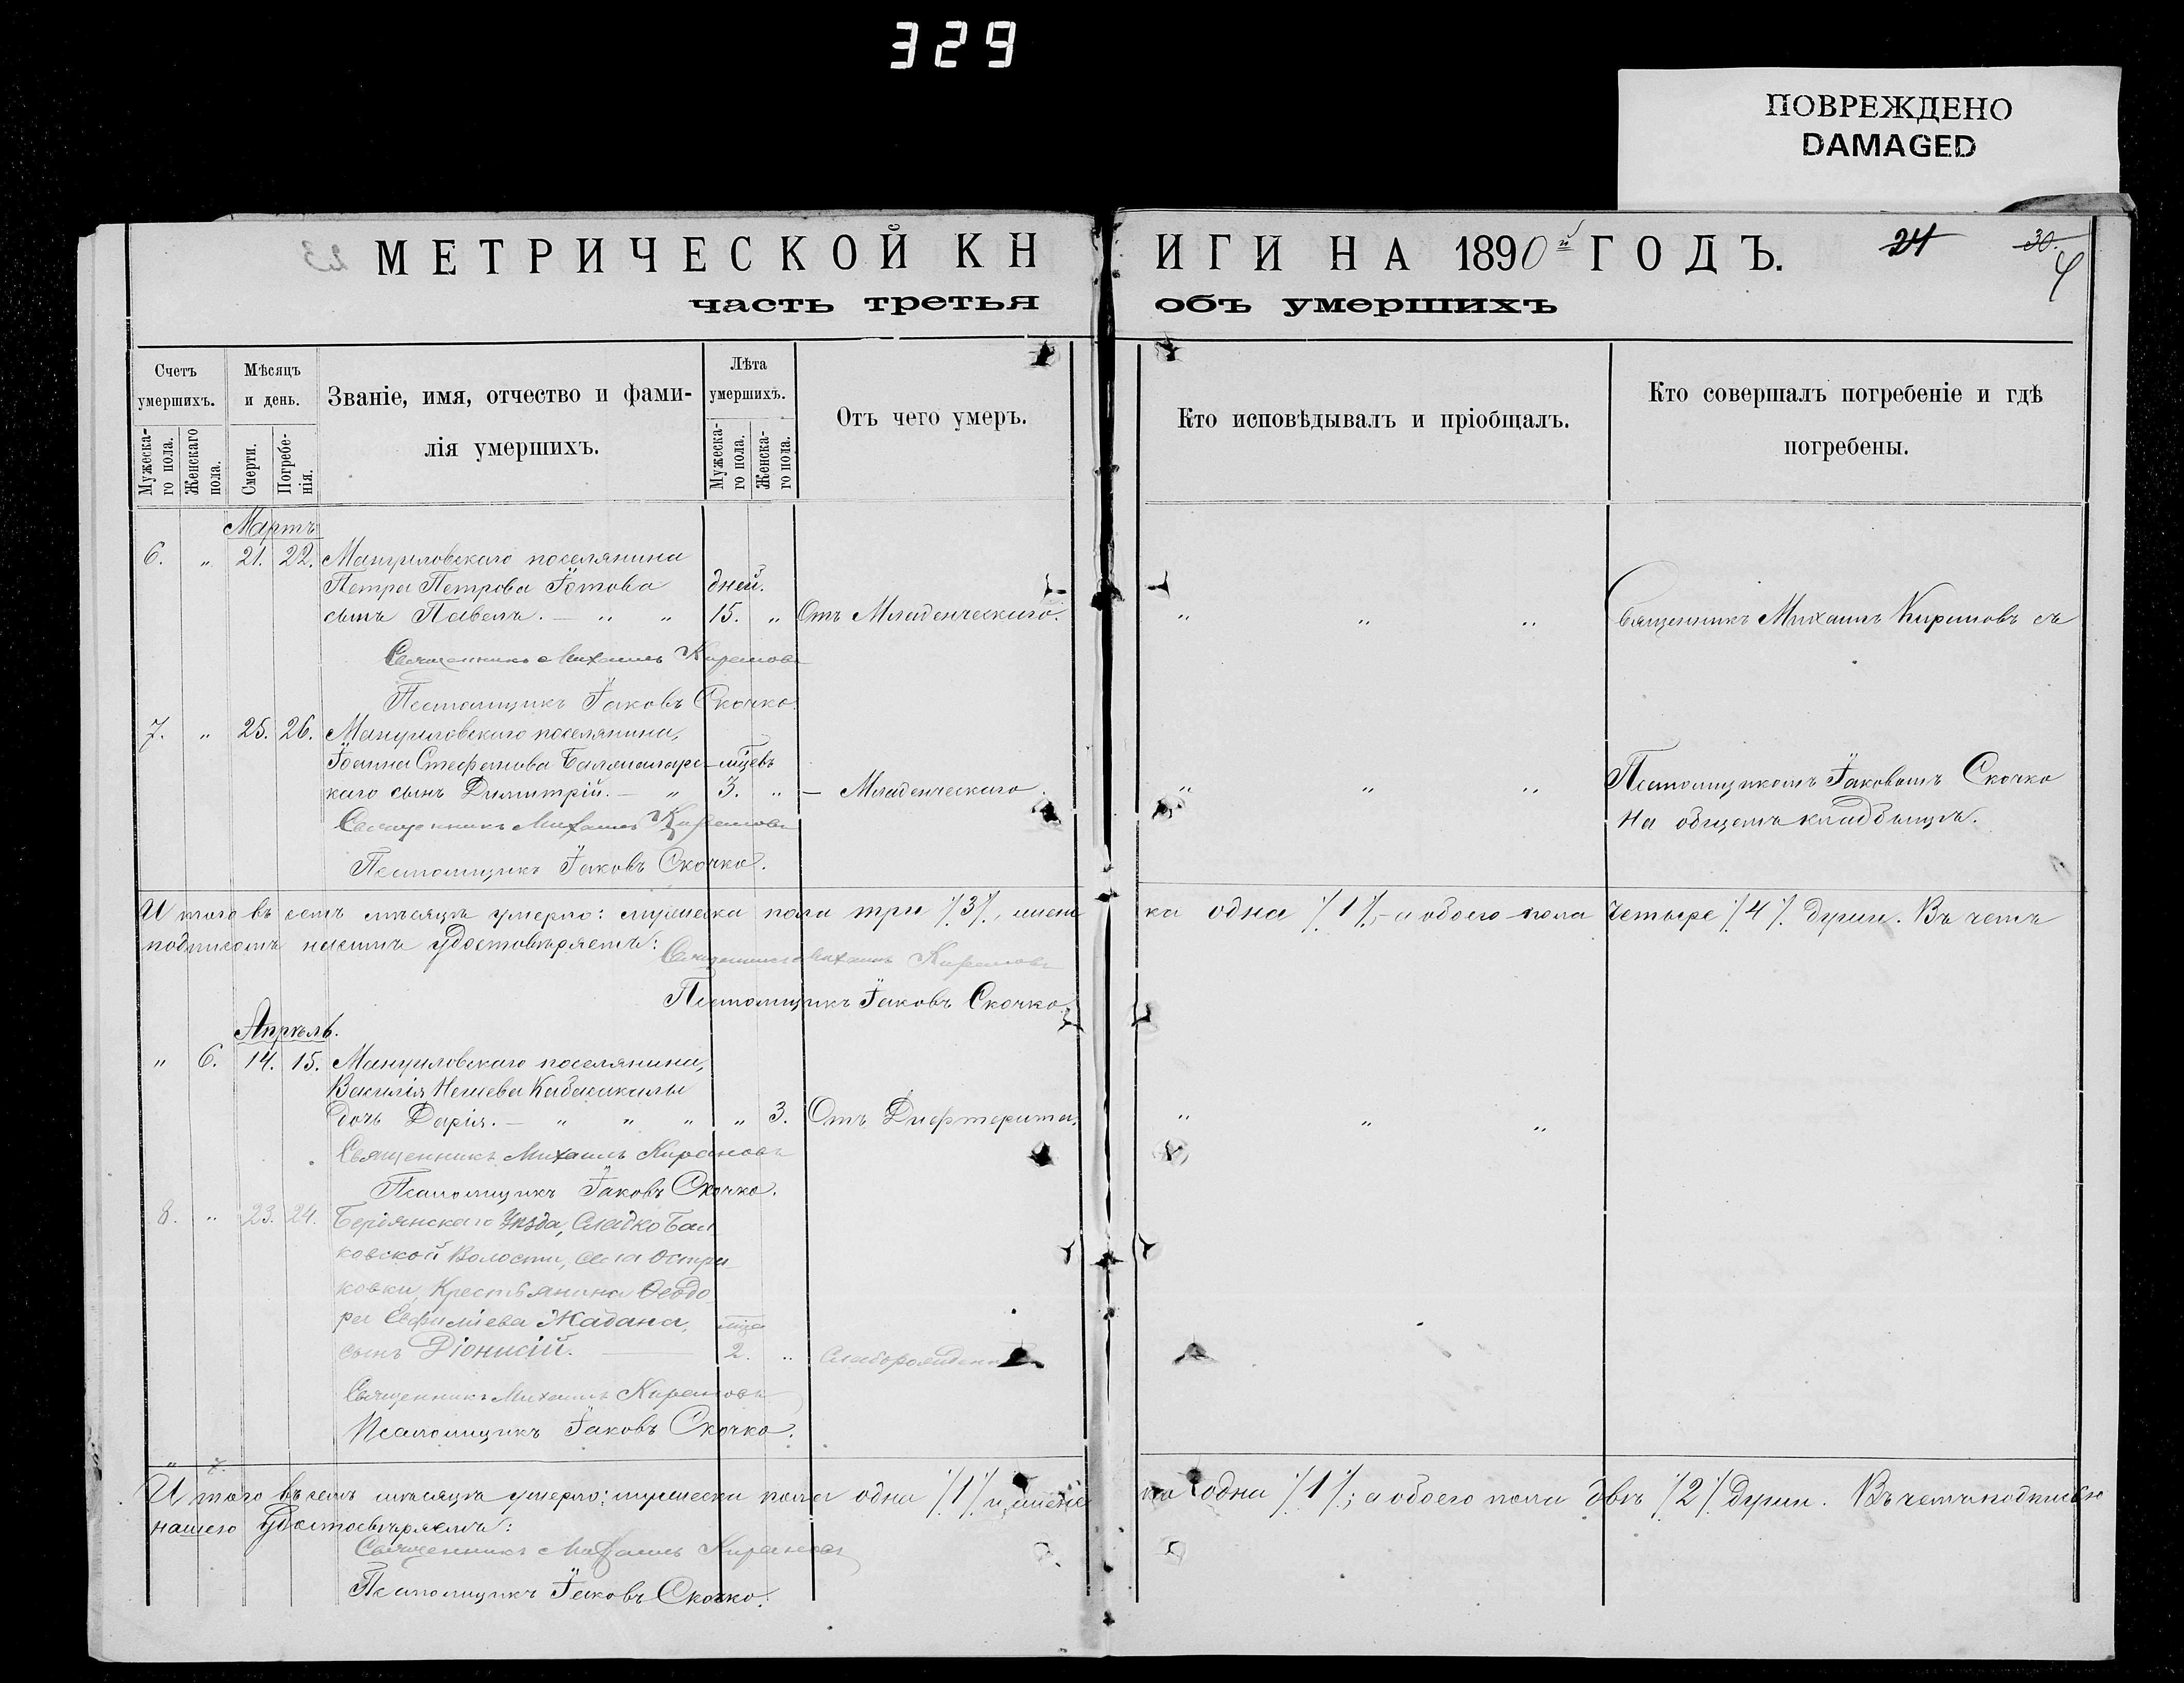 329
ПОВРЕЖДЕНО
DAMAGED
МЕТРИЧЕСКОЙ КН ИГИ НА 1890й ГОДЪ.
24
30.
часть третья объ умершихъ
Счетъ умершихъ.
Мужеска-го пола.
Женскаго пола.
Мѣсяцъ и день.
Смерти.
Погребе-нія.
Званіе, имя, отчество и фами-
лія умершихъ.
Лѣта умершихъ.
Мужеска-го пола.
Женска-го пола.
Отъ чего умеръ.
Кто исповѣдывалъ и пріобщалъ.
Кто совершалъ погребеніе и гдѣ
погребены.
Мартъ
6. " 21. 22. Мануиловскаго поселянина
Петра Петрова Іотова дней.
сынъ Павелъ. — " " 15. " Отъ Младенческаго. " " " Священникъ Михаилъ Кирановъ съ
Священникъ Михаилъ Кирановъ
Псаломщикъ Іаковъ Скочко.
7. " 25. 26. Мануиловскаго поселянина,
Іоанна Стефанова мѣсцевъ
каго сынъ Димитрій. — " 3. " — Младенческаго. " " " Псаломщикомъ Іаковомъ Скочко
Священникъ Михаилъ Кирановъ на общемъ кладбищѣ.
Псаломщикъ Іаковъ Скочко.
Итого въ семъ мѣсяцѣ умерло: мужеска пола три /3/, женс ка одна /1/, а обоего пола четыре /4/ души. Въ чемъ
подписомъ нашимъ удостовѣряемъ:
Священникъ Михаилъ Кирановъ
Псаломщикъ Іаковъ Скочко.
Апрѣль.
" 6. 14. 15. Мануиловскаго поселянина,
Василія
дочь Дарія. — " " " " 3. Отъ Дифтерита. " " "
Священникъ Михаилъ Кирановъ
Псаломщикъ Іаковъ Скочко.
8. " 23. 24. Бердянскаго Уѣзда, Сладко Бал
ковской Волости, села Остри
ковки, Крестьянина Ѳеодо
ра Евфиміева Жадана, мѣсца
сынъ Діонисій. — 2. "
Священникъ Михаилъ Кирановъ
Псаломщикъ Іаковъ Скочко.
Итого въ семъ мѣсяцѣ умерло: мужеска пола одна /1/ и женс ка одна /1/; а обоего пола двѣ /2/ души. Въ чемъ подписью
нашею удостовѣряемъ:
Священникъ Михаилъ Кирановъ
Псаломщикъ Іаковъ Скочко.